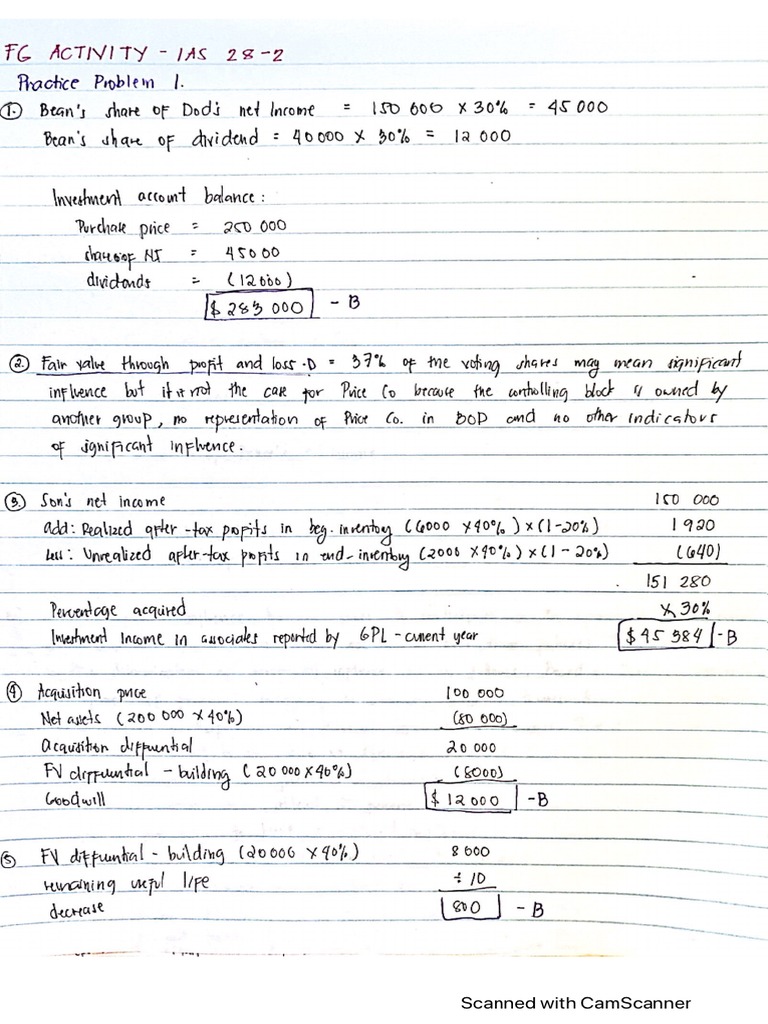 FG ACTIVITY - IAS 28-2
Practice Problem 1.
① Bean's share of Dod's net Income = 150 000 × 30% = 45 000
Bean's share of dividend = 40 000 × 30% = 12 000
Investment account balance :
Purchase price = 250 000
share of NI = 45 000
dividends = (12 000)
$ 283 000 - B
② Fair value through profit and loss - D = 37% of the voting shares may mean significant
influence but it is not the case for Price Co because the controlling block is owned by
another group, no representation of Price Co. in BOD and no other indicators
of significant influence.
③ Son's net income 150 000
add: Realized after-tax profits in beg. inventory (6000 × 40%) × (1-20%) 1 920
Less: Unrealized after-tax profits in end-inventory (2000 × 40%) × (1-20%) (640)
151 280
Percentage acquired × 30%
Investment Income in associates reported by GPL - current year $ 45 384 - B
④ Acquisition price 100 000
Net assets (200 000 × 40%) (80 000)
Acquisition differential 20 000
FV differential - building (20 000 × 40%) (8000)
Goodwill $ 12 000 - B
⑤ FV differential - building (20 000 × 40%) 8 000
remaining useful life ÷ 10
decrease 800 - B
Scanned with CamScanner